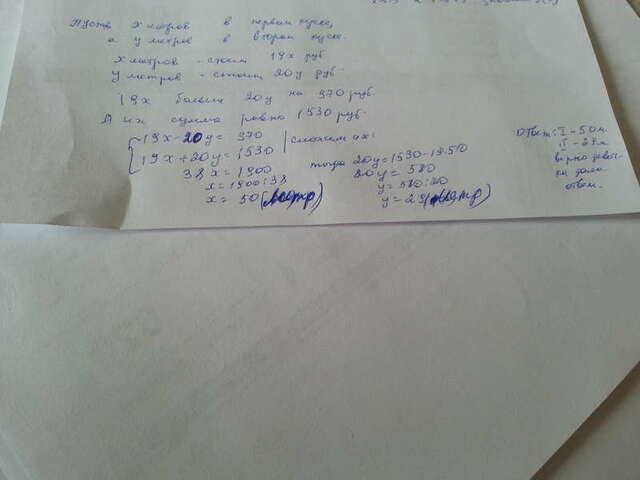 Пусть x метров в первом куске,
а y метров в втором куске.
x метров - стоим 19x руб
y метров - стоит 20y руб.
19x больше 20y на 370 руб.
А их сумма равна 1530 руб.
19x - 20y = 370 | сложим их:
19x + 20y = 1530
38x = 1900
x = 1900:38
x = 50 (метр)
тогда 20y = 1530 - 19·50
20y = 580
y = 580:20
y = 29 (метр)
Ответ: I - 50 м.
II - 29 м
верно
ответ.